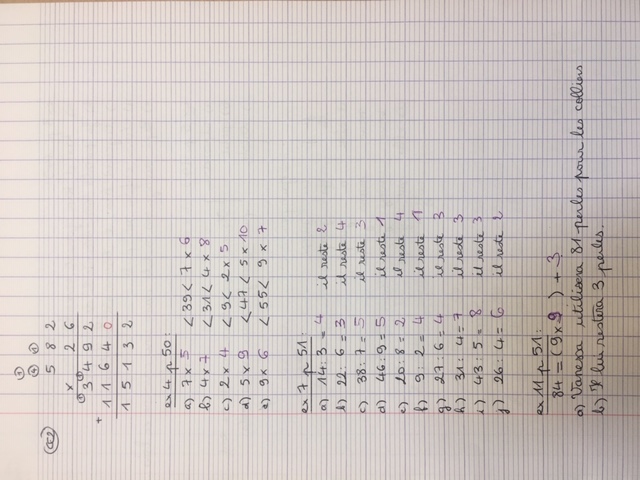 CE2
+ +
5 8 2
× 2 6
3 4 9 2
+ 1 1 6 4 0
1 5 1 3 2
ex 4 p 50
a) 7 × 5 < 39 < 7 × 6
b) 4 × 7 < 31 < 4 × 8
c) 2 × 4 < 9 < 2 × 5
d) 5 × 9 < 47 < 5 × 10
e) 9 × 6 < 55 < 9 × 7
ex 7 p 51:
a) 14 : 3 = 4 il reste 2
b) 22 : 6 = 3 il reste 4
c) 38 : 7 = 5 il reste 3
d) 46 : 9 = 5 il reste 1
e) 20 : 8 = 2 il reste 4
f) 9 : 2 = 4 il reste 1
g) 27 : 6 = 4 il reste 3
h) 31 : 4 = 7 il reste 3
i) 43 : 5 = 8 il reste 3
j) 26 : 4 = 6 il reste 2
ex 11 p 51:
84 = (9 × 9) + 3
a) Vanessa utilisera 81 perles pour les colliers
b) Il lui restera 3 perles.